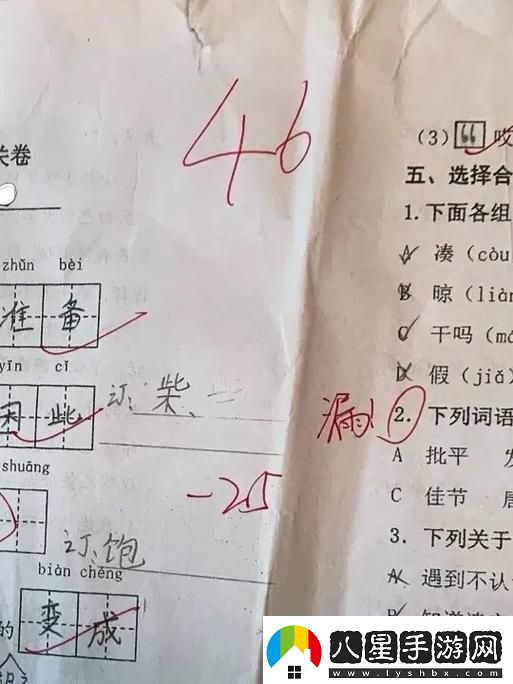 46
关卷
zhǔn bèi
准备
yīn cǐ
因此
订:柴、
shuāng
-2.5
订:饱
biàn chéng
的 变成
(3)
五、选择合
1.下面各组
A 凑(còu
B 晾(liàn
C 干吗(má
D 假(jiǎ)
漏!
2.下列词语
A 批平
C 佳节
3.下列关于
A 遇到不认
B
八星手游网
www.lyshbx.com